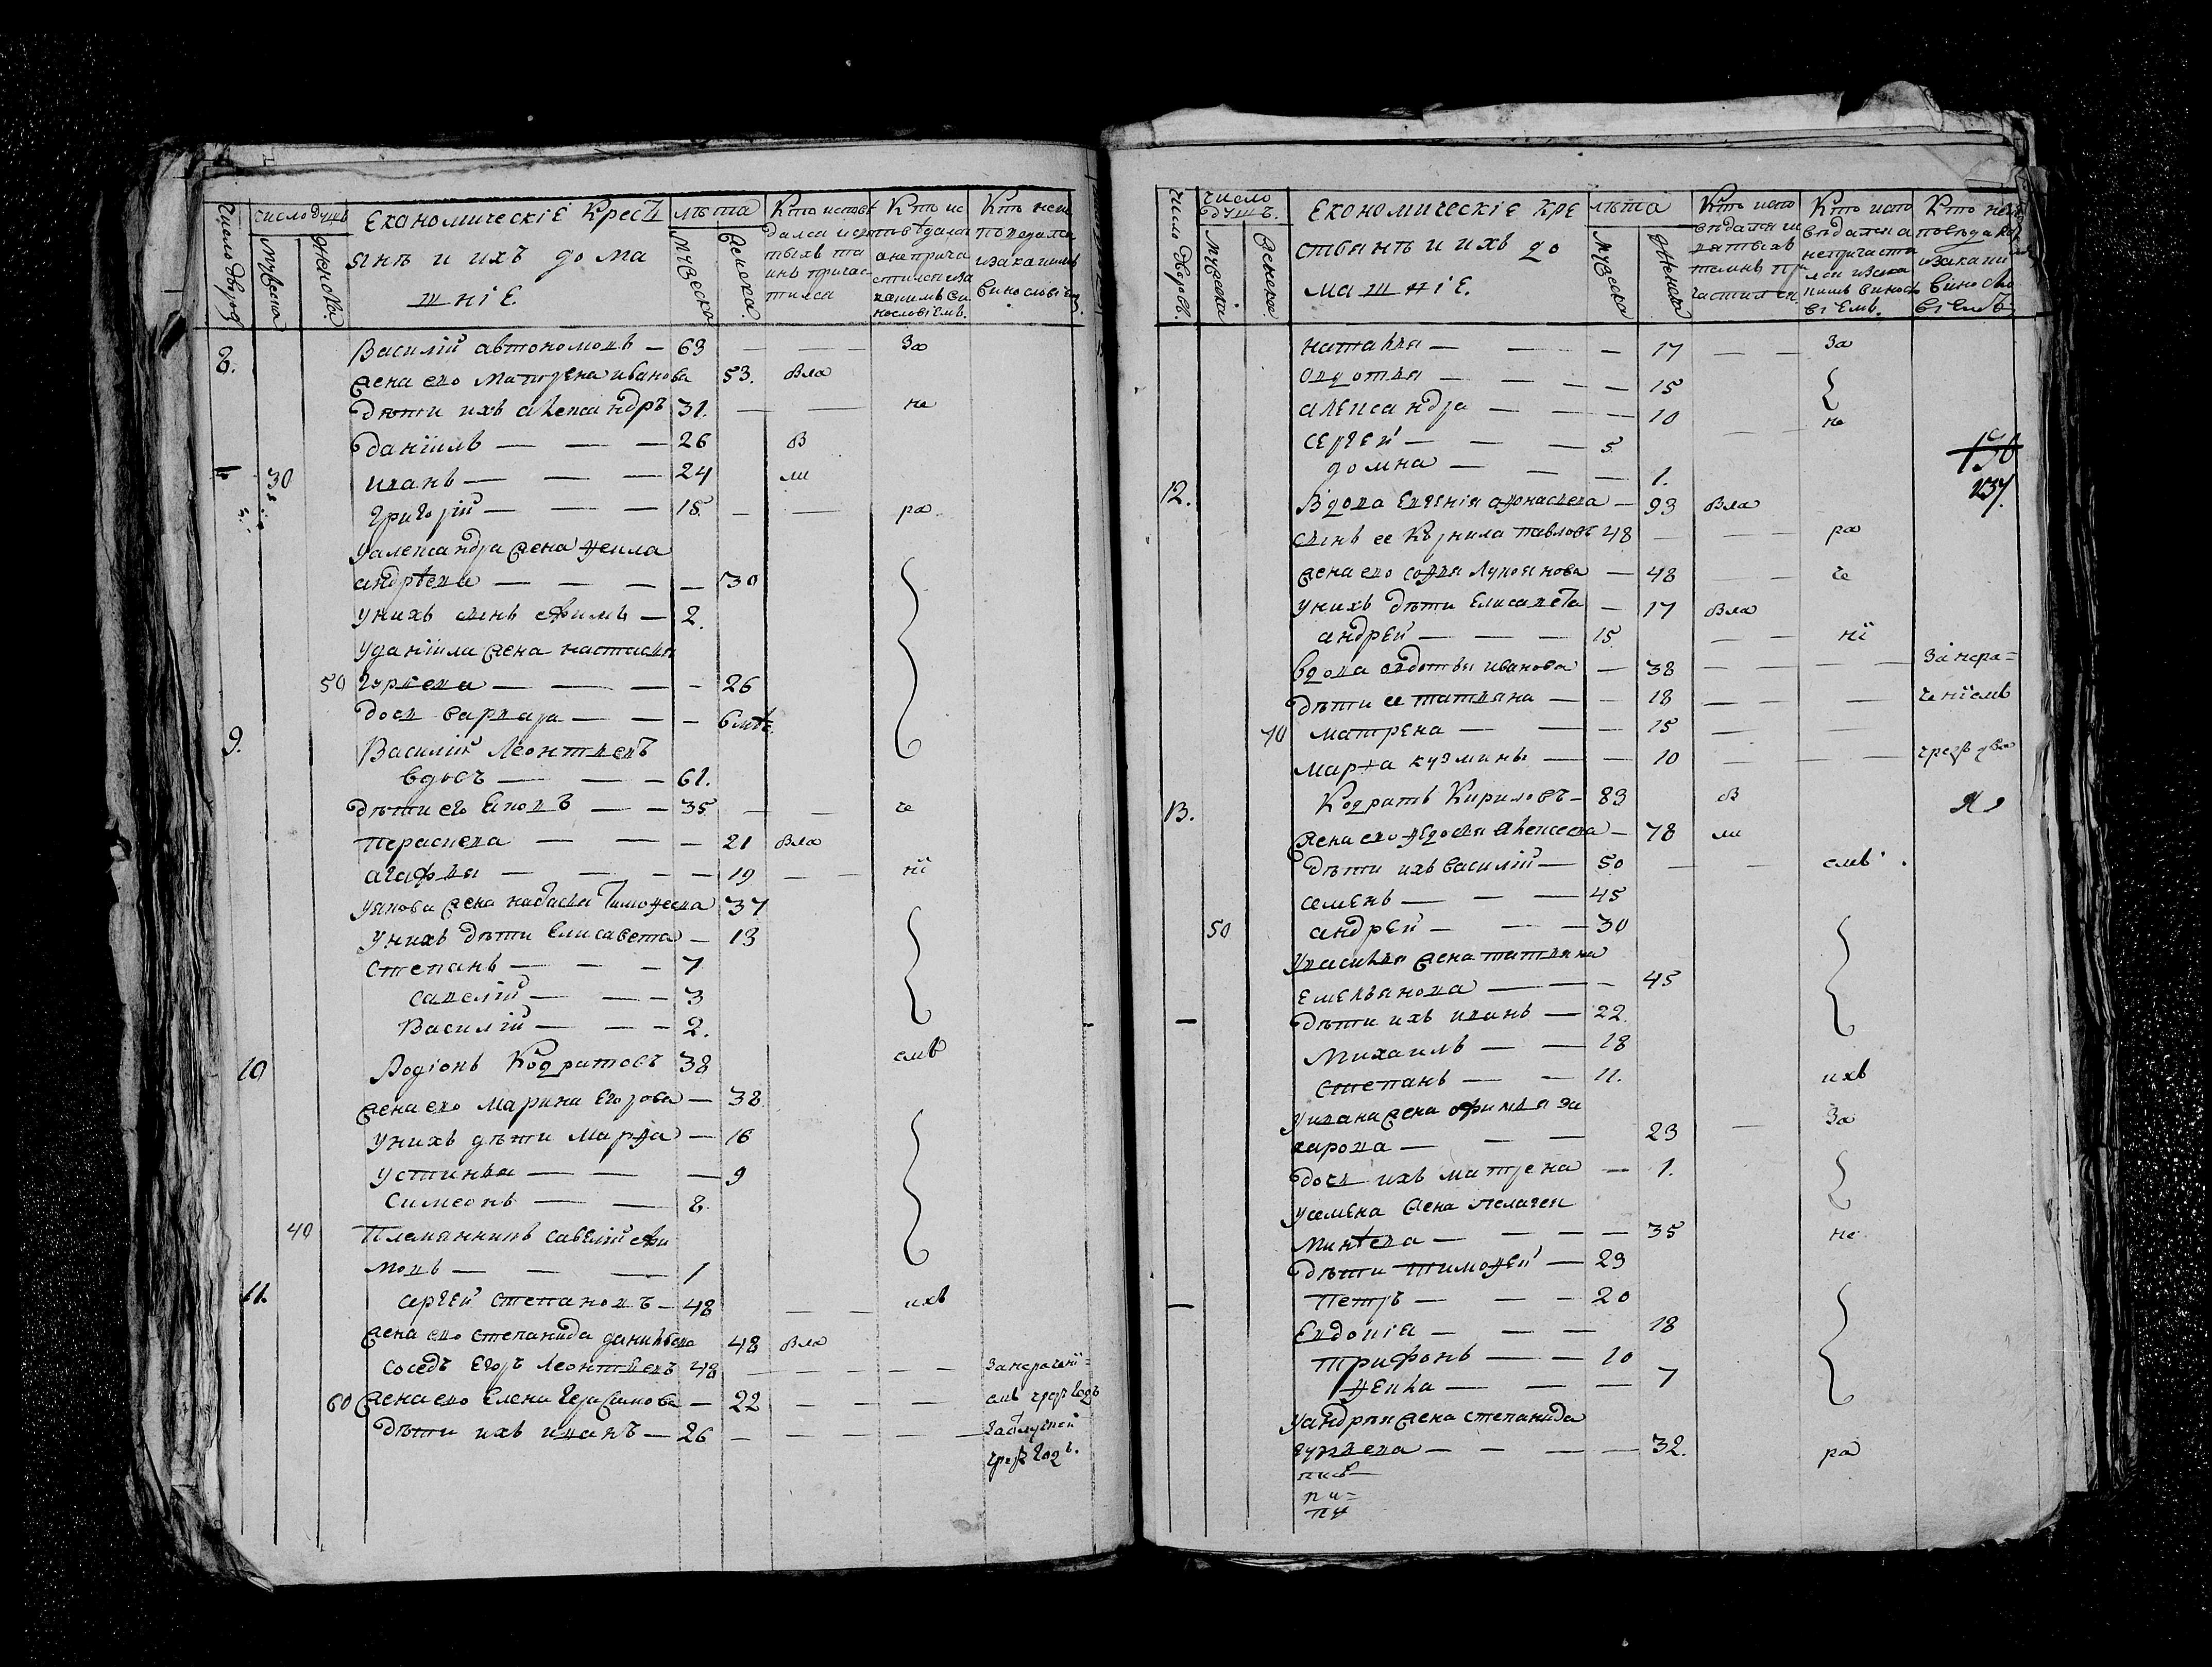 Число дворовъ
число душъ
мужеска
женска
Економическіе крестъ
янѣ и ихъ дома
шніе
лѣта
мужеска
женска
Кто исповѣ
дался и святыхъ та
инъ причас
тился
Кто ис
повѣдался
а не прича
стился и за
каимъ ви
нословіемъ.
Кто не ис
поведался
и за каимъ
винословіемъ.
8. Василій автономовъ — 63 — — За
жена его матрена иванова 53. Вла
дѣти ихъ александръ 31. — — не
даніилъ — — — 26 в
30 иванъ — — — 24 ли
григорій — — — 18 — — ра
у александра жена фекла
андрѣева — — — — 30
у нихъ сынъ ефимъ — 2.
у даніила жена настасья
50 гурьева — — — — 26
дочь варвара — — — 6 мѣс.
9. Василій Леонтьевъ
вдовъ — — — 61.
дѣти его яковъ — — 35. — — че
Параскева — — — 21 Вла
агафья — — — — 19 — — ні
у якова жена наталья Тимофеева 37
у нихъ дѣти Елисавета — 13
степанъ — — — 7
савелій — — — 3
Василій — — — 2.
10 Родіонъ Кодратовъ 38 емъ
жена его марина Егорова — 38
у нихъ дѣти Марфа — 16
устинья — — — 9
Симеонъ — — 8.
40 Племянникъ савелій ефи
мовъ — — — 1
11. сергей степановъ — 48 — — ихъ
жена его степанида данильева 48 вла
соседъ Егоръ Леонтьевъ 48 — — — — За нерачені=
60 жена его Елена Герасимова — 22 — — — емъ чрезъ годъ
дѣти ихъ иванъ — 26 — — — — —
чрезъ годъ.
число дворовъ.
число
душъ.
мужеска
женска
Економическіе кре
стьянѣ и ихъ до
машніе.
лѣта
мужеска
женска
Кто испо
вѣдался и
святыхъ
таинъ при
частился.
Кто испо
вѣдался а
не причасти
лся и за ка
кимъ винос
віемъ.
Кто не ис
повѣдался
и за каки
винос
віемъ
наталья — — — 17 — — За
авдотья — — — — 15
александра — — — 10 не
сергей — — — 5. — —
домна — — — 1.
150
237.
12. Вдова Евгенія афонасьева — 93 Вла
сынъ ее Кирила павловъ 48 — — — ра
жена его софья Лукоянова — 48 — — че
у нихъ дѣти Елисавета — 17 Вла
андрей — — — 15 — — ні
вдова авдотья иванова — 38 — — — — За нера=
дѣти ее татьяна — — 18 — — — ченіемъ
70 матрена — — — 15 — — —
марфа кузмины — — 10 — — — чрезъ два
13. Кодратъ Кириловъ — 83 в
жена его федосья алексеева — 78 ли
дѣти ихъ василій — 50 — — емъ.
семенъ — — — 45
50 андрей — — — 30
у василья жена татьяна
емельянова — — — 45
дѣти ихъ иванъ — 22.
Михаилъ — — 18
степанъ — — 11. ихъ
у ивана жена офимья за
харова — — — 23 — За
дочь ихъ матрена — 1.
у семена жена пелагея
минѣева — — — — 35 не
дѣти тимофей — 23
Петръ — — — 20
Евдокія — — — 18
трифонъ — — 10
фекла — — — 7
у андрѣя жена степанида
гурьева — — — — 32. ра